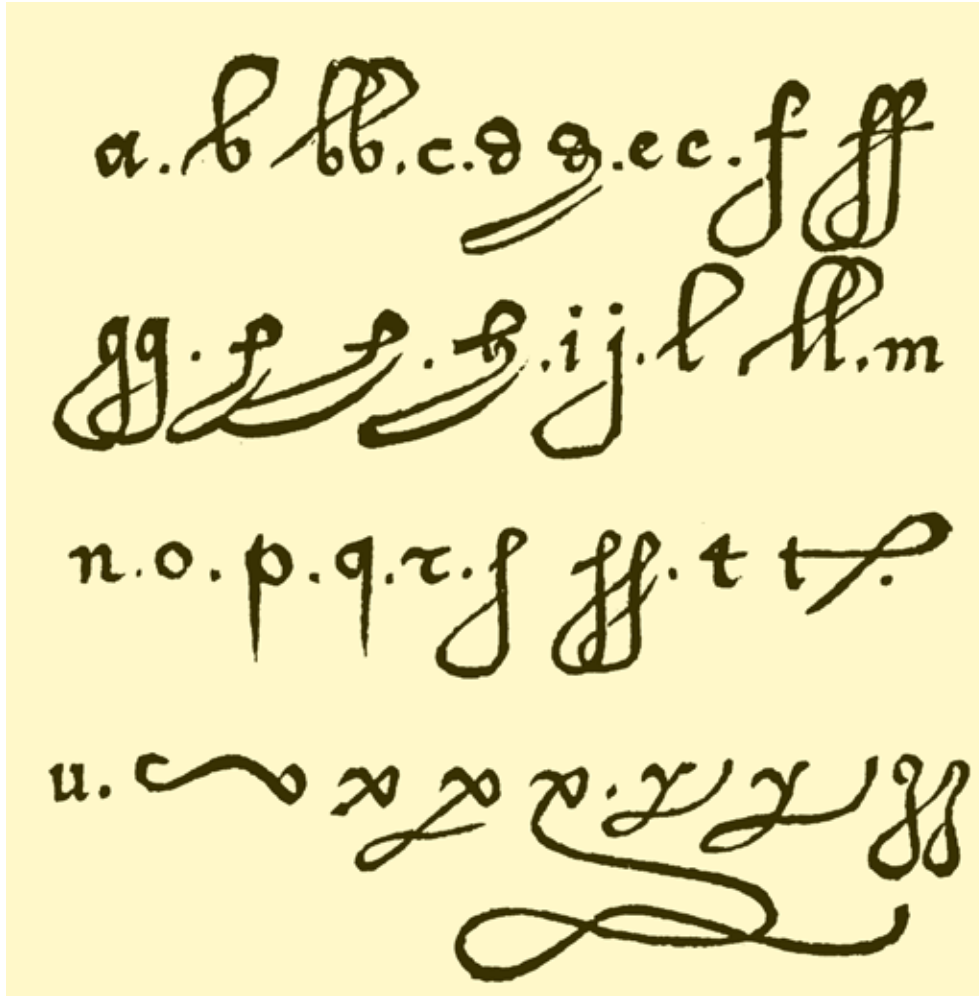 a. b bb. c. d d. e e. f ff
gg. h h. h. i j. l ll. m
n. o. p. q. r. ſ ſſ. t t.
u. x x x. y y zz